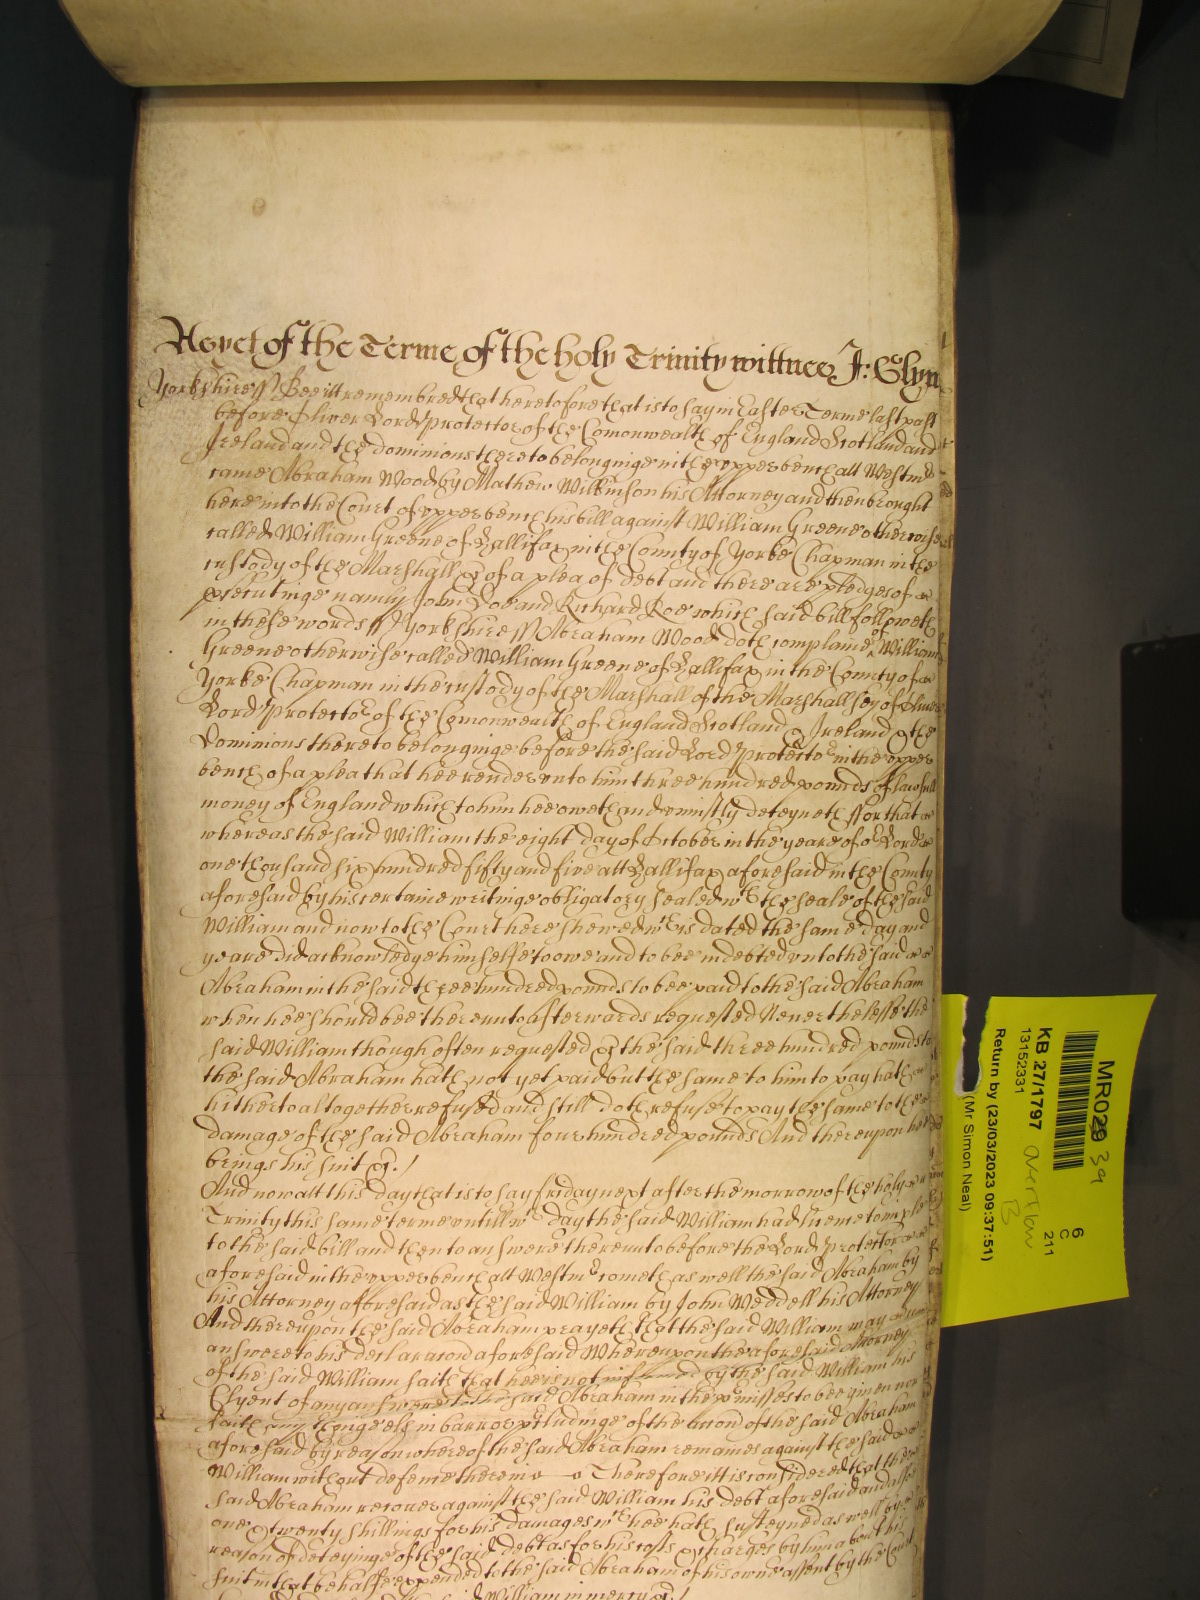 As yet of the Terme of the holy Trinity wittnes J: Glyn
Yorkshire ss Bee itt remembred that heretofore that is to say in Easter Terme last past
before Oliver Lord Protector of the Comonwealth of England Scotland and
Ireland and the dominions thereto belonginge in the upper bench att Westmr
came Abraham Wood by Mathew Wilkinson his Attorney and then brought
here into the Court of upper bench his bill against William Greene otherwise
called William Greene of Hallifax in the County of Yorke Chapman in the
custody of the Marshall &c of a plea of debt and there are pledges of
prsecutinge namely John Doe and Richard Roe which said bill followeth
in these words ss Yorkshire ss Abraham Wood doth complaine of William
Greene otherwise called William Greene of Hallifax in the County of
Yorke Chapman in the custody of the Marshall of the Marshallsey of Oliver
Lord Protector of the Comonwealth of England Scotland & Ireland & the
Dominions thereto belonginge before the said Lord Protector in the upper
bench of a plea that hee render unto him three hundred pounds of lawfull
money of England which to him hee oweth and uniustly deteyneth ffor that
whereas the said William the eight day of October in the yeare of or Lord
one thousand six hundred fifty and five att Hallifax aforesaid in the County
aforesaid by his certaine writinge obligatory sealed wth the seale of the said
William and now to the Court here shewed wch is dated the same day and
yeare did acknowledge himselfe to owe and to bee indebted unto the said
Abraham in the said three hundred pounds to bee paid to the said Abraham
when hee should bee thereunto afterwards requested Neverthelesse the
said William though often requested &c the said three hundred pounds to
the said Abraham hath not yet paid but the same to him to pay hath
hitherto altogether refused and still doth refuse to pay the same to the
damage of the said Abraham four hundred pounds And thereupon hee
brings his suit &c. /
And now att this day that is to say friday next after the morrow of the holy
Trinity this same terme untill wch day the said William had licence to imple
to the said bill and then to answere thereunto before the Lord Protector
aforesaid in the upper bench att Westmr cometh as well the said Abraham by
his Attorney aforesaid as the said William by John Weddell his Attorney
And thereupon the said Abraham prayeth that the said William may
answere to his declaracon aforesaid Whereupon the aforesaid Attorney
of the said William saith that hee is not informed by the said William his
Clyent of any answere to the said Abraham in the pmisses to bee given nor
saith any thinge els in barr or pcludinge of the accon of the said Abraham
aforesaid by reason whereof the said Abraham remaines against the said
William without defence therein Therefore itt is considered that the
said Abraham recover against the said William his debt aforesaid and alsoe
one & twenty shillings for his damages wch hee hath susteyned as well by
reason of deteyinge of the said debt as for his costs & charges by him about his
suit in that behalfe expended to the said Abraham of his owne assent by the Court
William in mercy &c /
MR029
39
6
C
211
KB 27/1797
overflow
B
13152331
Return by (23/03/2023 09:37:51)
(Mr Simon Neal)